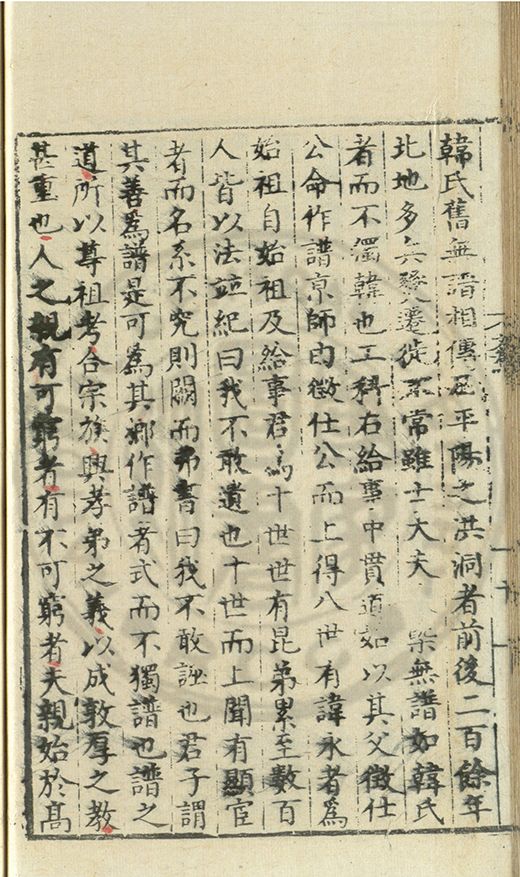 韓氏舊無譜相傳居平陽之洪洞者前後二百餘年
北地多兵燹遷徙不常雖士大夫槩無譜如韓氏
者而不獨韓也工科右給事中貫道始以其父徵仕
公命作譜京師由徵仕公而上得八世有諱永者爲
始祖自始祖及給事君爲十世世有昆弟累至數百
人皆以法並紀曰我不敢遺也十世而上聞有顯宦
者而名系不究則闕而弗書曰我不敢誣也君子謂
其善爲譜是可爲其鄉作譜者式而不獨譜也譜之
道所以尊祖考合宗族興孝弟之義以成敦厚之教
甚重也人之親有可窮者有不可窮者夫親始於高